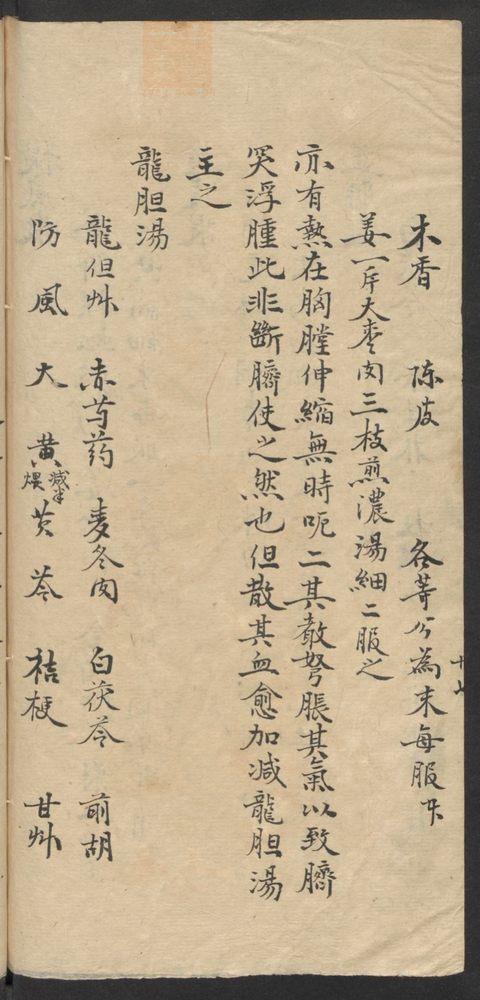 木香 陈皮 各等分為末每服半
姜一斤大枣肉三枝煎濃湯細二服之
亦有熱在胸膛伸縮無時呃二其教努脹其氣以致臍
突浮腫此非斷臍使之然也但散其血愈加减龍胆湯
主之
龍胆湯
龍但艸 赤芍药 麦冬肉 白茯苓 前胡
防風 大黄煨减半 黄芩 桔梗 甘艸
十七